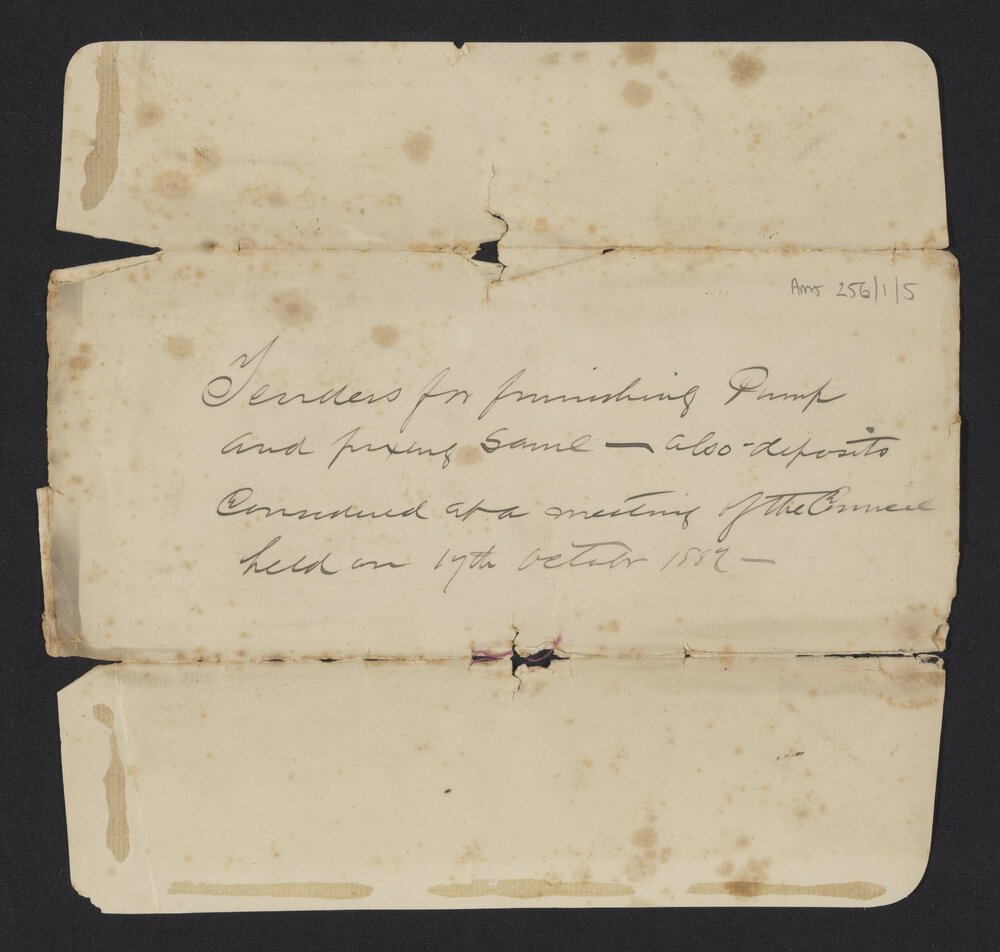 Arr 256/1/5
Tenders for furnishing Pump
and fixing same — also deposits
Considered at a meeting of the Council
held on 17th October 1882 —